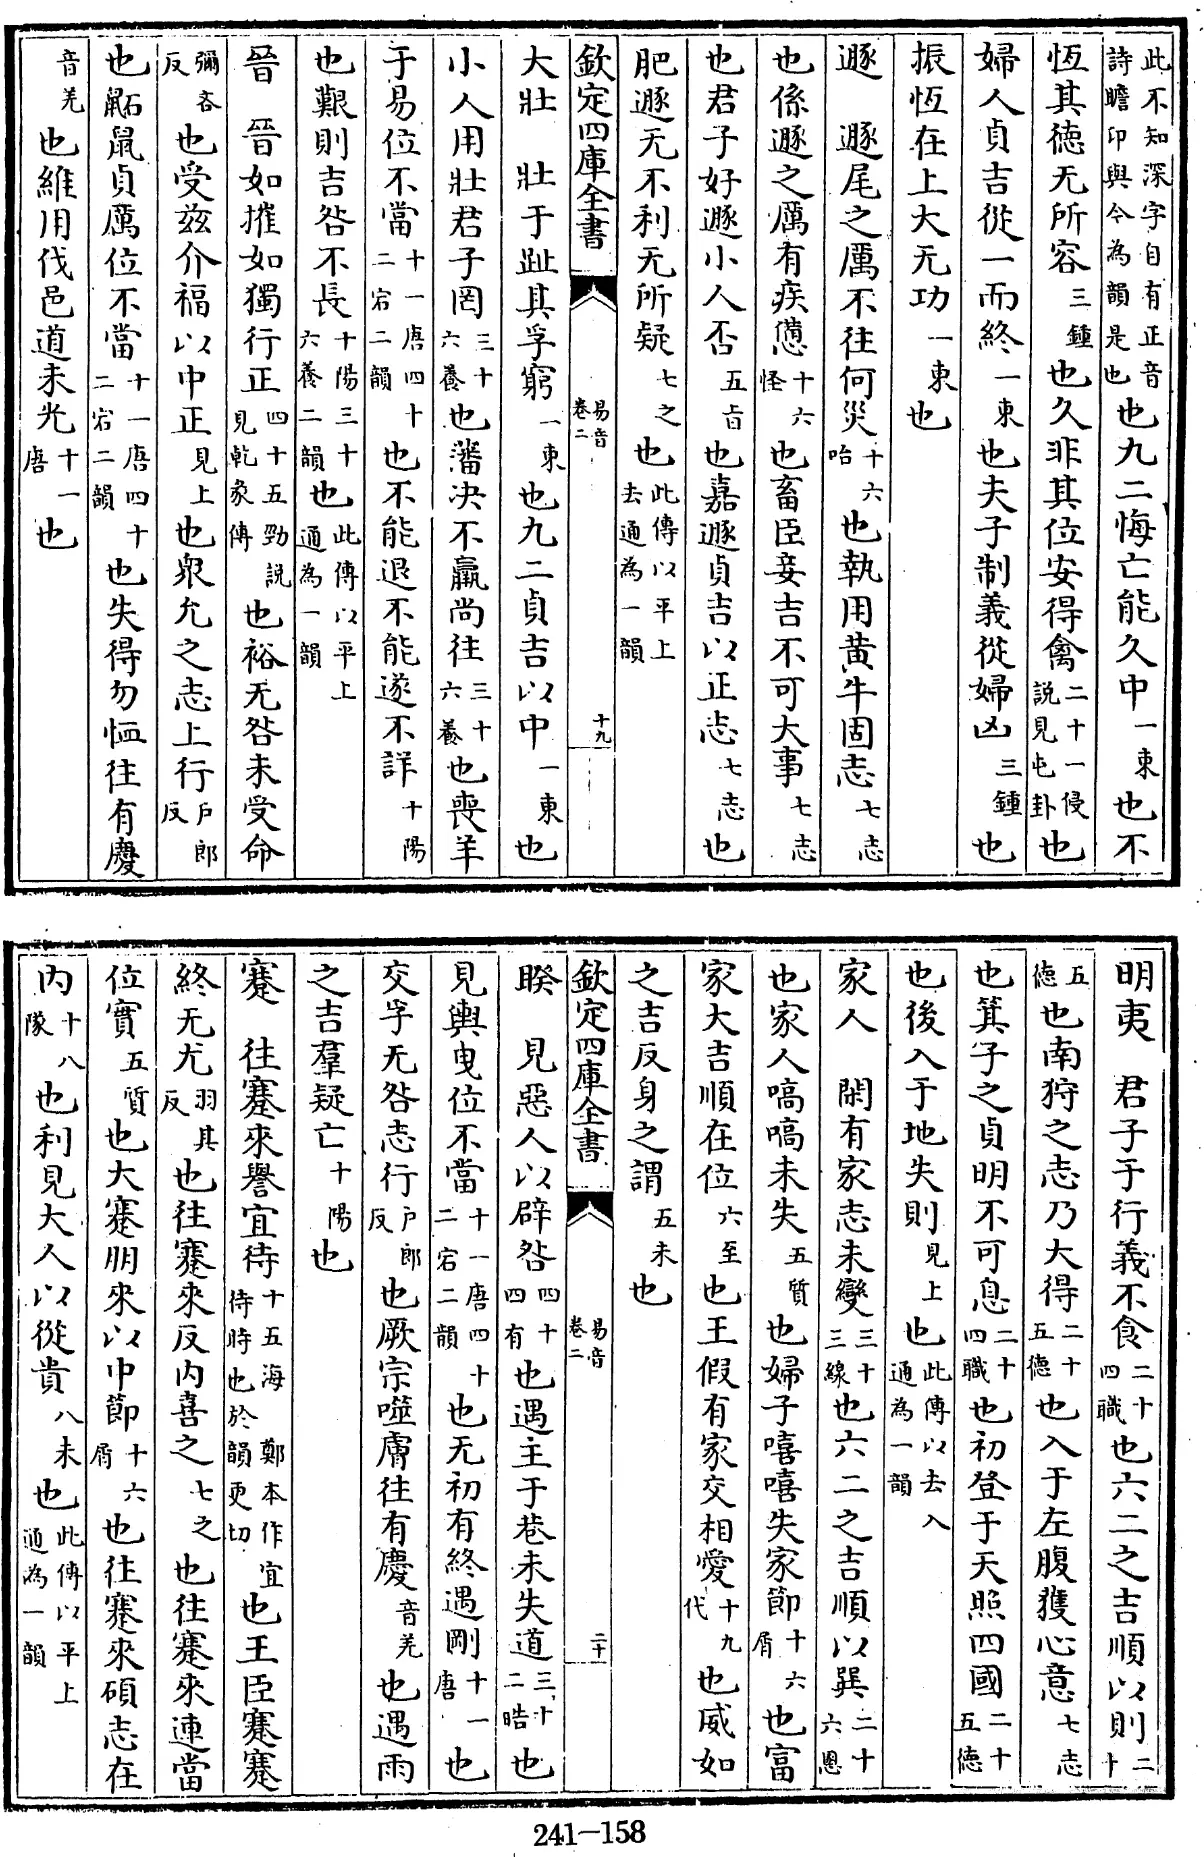 此不知深字自有正音詩瞻卬與今為韻是也也九二悔亡能久中一東也不
恆其德无所容三鍾也久非其位安得禽二十一侵說見屯卦也
婦人貞吉從一而終一東也夫子制義從婦凶三鍾也
振恆在上大无功一東也
遯　遯尾之厲不往何災十六咍也執用黄牛固志七志
也係遯之厲有疾憊十六怪也畜臣妾吉不可大事七志
也君子好遯小人否五旨也嘉遯貞吉以正志七志也
肥遯无不利无所疑七之也此傳以平上去通為一韻
欽定四庫全書　易音卷二　十九
大壯　壯于趾其孚窮一東也九二貞吉以中一東也
小人用壯君子罔三十六養也藩决不羸尚往三十六養也喪羊
于易位不當十一唐四十二宕二韻也不能退不能遂不詳十陽
也艱則吉咎不長十陽三十六養二韻也此傳以平上通為一韻
晉　晉如摧如獨行正四十五勁說見乾彖傳也裕无咎未受命
彌吝反也受兹介福以中正見上也衆允之志上行户郎反
也鼫鼠貞厲位不當十一唐四十二宕二韻也失得勿恤往有慶
音羌也維用伐邑道未光十一唐也
明夷　君子于行義不食二十四職也六二之吉順以則二十
五德也南狩之志乃大得二十五德也入于左腹獲心意七志
也箕子之貞明不可息二十四職也初登于天照四國二十五德
也後入于地失則見上也此傳以去入通為一韻
家人　閑有家志未變三十三線也六二之吉順以巽二十六慁
也家人嗃嗃未失五質也婦子嘻嘻失家節十六屑也富
家大吉順在位六至也王假有家交相愛十九代也威如
之吉反身之謂五未也
欽定四庫全書　易音卷二　二十
睽　見惡人以辟咎四十四有也遇主于巷未失道三十二晧也
見輿曳位不當十一唐四十二宕二韻也无初有終遇剛十一唐也
交孚无咎志行户郎反也厥宗噬膚往有慶音羌也遇雨
之吉羣疑亡十陽也
蹇　往蹇來譽宜待十五海鄭本作宜待時也於韻更切也王臣蹇蹇
終无尤羽其反也往蹇來反内喜之七之也往蹇來連當
位實五質也大蹇朋來以中節十六屑也往蹇來碩志在
内十八隊也利見大人以從貴八未也此傳以平上通為一韻
241—158